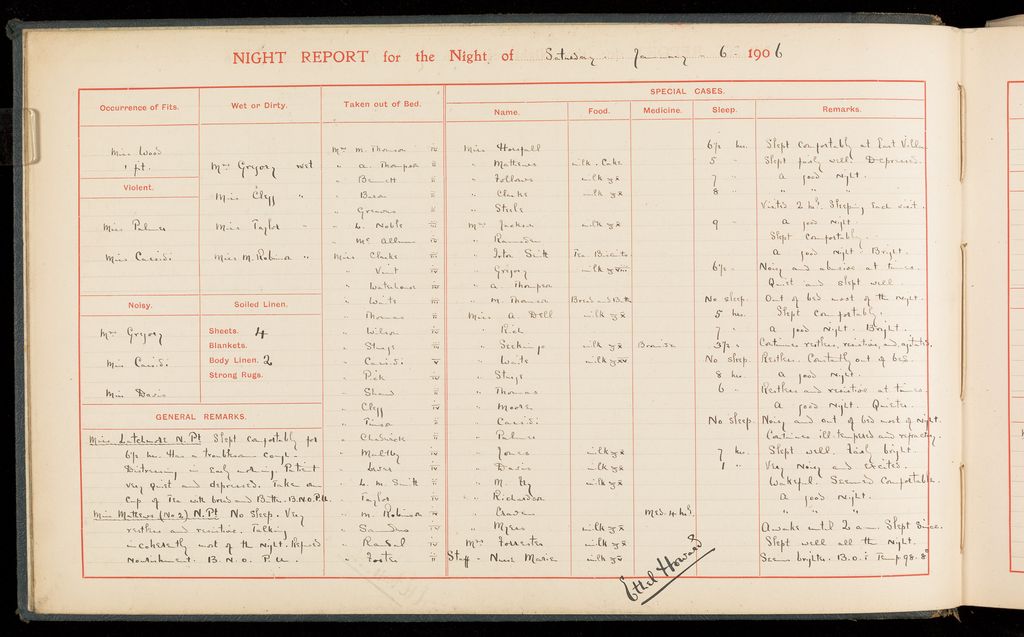 NIGHT REPORT for the Night of Saturday January 6 1906
Occurrence of Fits.
Miss Wood
1 fit.
Violent.
Miss Palmer
Miss Cassidi
Noisy.
Mrs Gregory
Miss Cassidi
Miss Davis
Wet or Dirty.
Mrs Gregory wet
Miss Clegg "
Miss Taylor "
Miss M. Robina "
Soiled Linen.
Sheets. 4
Blankets.
Body Linen. 2
Strong Rugs.
GENERAL REMARKS.
Miss Latchmore N. Pt Slept comfortably for
6½ hrs. Has a troublesome cough -
Distressing in early morning. Patient
very quiet and depressed. Taken one
cup of Tea with bread and Butter. B.N.O. P.U.
Miss Mathews (No 2) N. Pt No Sleep. Very
restless and resistive. Talking
incoherently most of the night. Refused
nourishment. B. N. O. P. U.
Taken out of Bed.
Mrs M. Thomson iv
" A. Thompson
" Bennett ii
" Greaves ii
" L. Noble
" Mc Allum iv
Miss Clarke
" Vint
" Waterhouse
" Waite
" Thomas
" Wilson
" Sturge
" Cassidi
" Pick
" Shaw
" Clegg
" Chadwick
" Maltby
" L. M. Smith
" Taylor
" M. Robinson
" Sanders
" Foster
SPECIAL CASES.
Name. Food. Medicine. Sleep. Remarks.
Miss Horsfall 6½ hrs. Slept comfortably at East Villa
" Mathews milk. Cake 5 " Slept fairly well. Depressed.
" Follows milk 7 " A good night.
" Clarke milk 8 " " " "
" Steele Visited 2 hrly. Sleeping each visit.
Mrs Jackson milk 9 " A good night.
" Ramsden Slept comfortably.
" Tea Biscuits A good night. Bright.
" Gregory milk 6½ " Noisy and abusive at times.
" A. Thompson Quiet and slept well.
" M. Thomson Bread and Butter No sleep. Out of bed most of the night.
Miss A. Dell milk 5 hrs. Slept comfortably.
" Rich 7 " A good night. Bright.
" milk 3½ " Continues restless, resistive, and agitated.
" Waite milk No sleep. Restless. Constantly out of bed.
" Sturge 8 hrs. A good night.
" Thomas 6 " Restless and resistive at times.
" Moore A good night. Quieter.
" Cassidi No sleep. Noisy and out of bed most of night.
" Palmer Continues ill-tempered and refractory.
" Jones milk 7 hrs. Slept well. Fairly bright.
" Davis milk 1 " Very noisy and excited.
" M. milk Wakeful. Seemed comfortable.
" Richardson A good night.
" Craven Med. 4 hrly. " " "
" Myers milk Awake until 2 a.m. Slept since.
Mrs Forrester milk Slept well all the night.
Staff - Nurse Marie milk Seems brighter. B.O. i Temp 98.8°
Ethel Howard